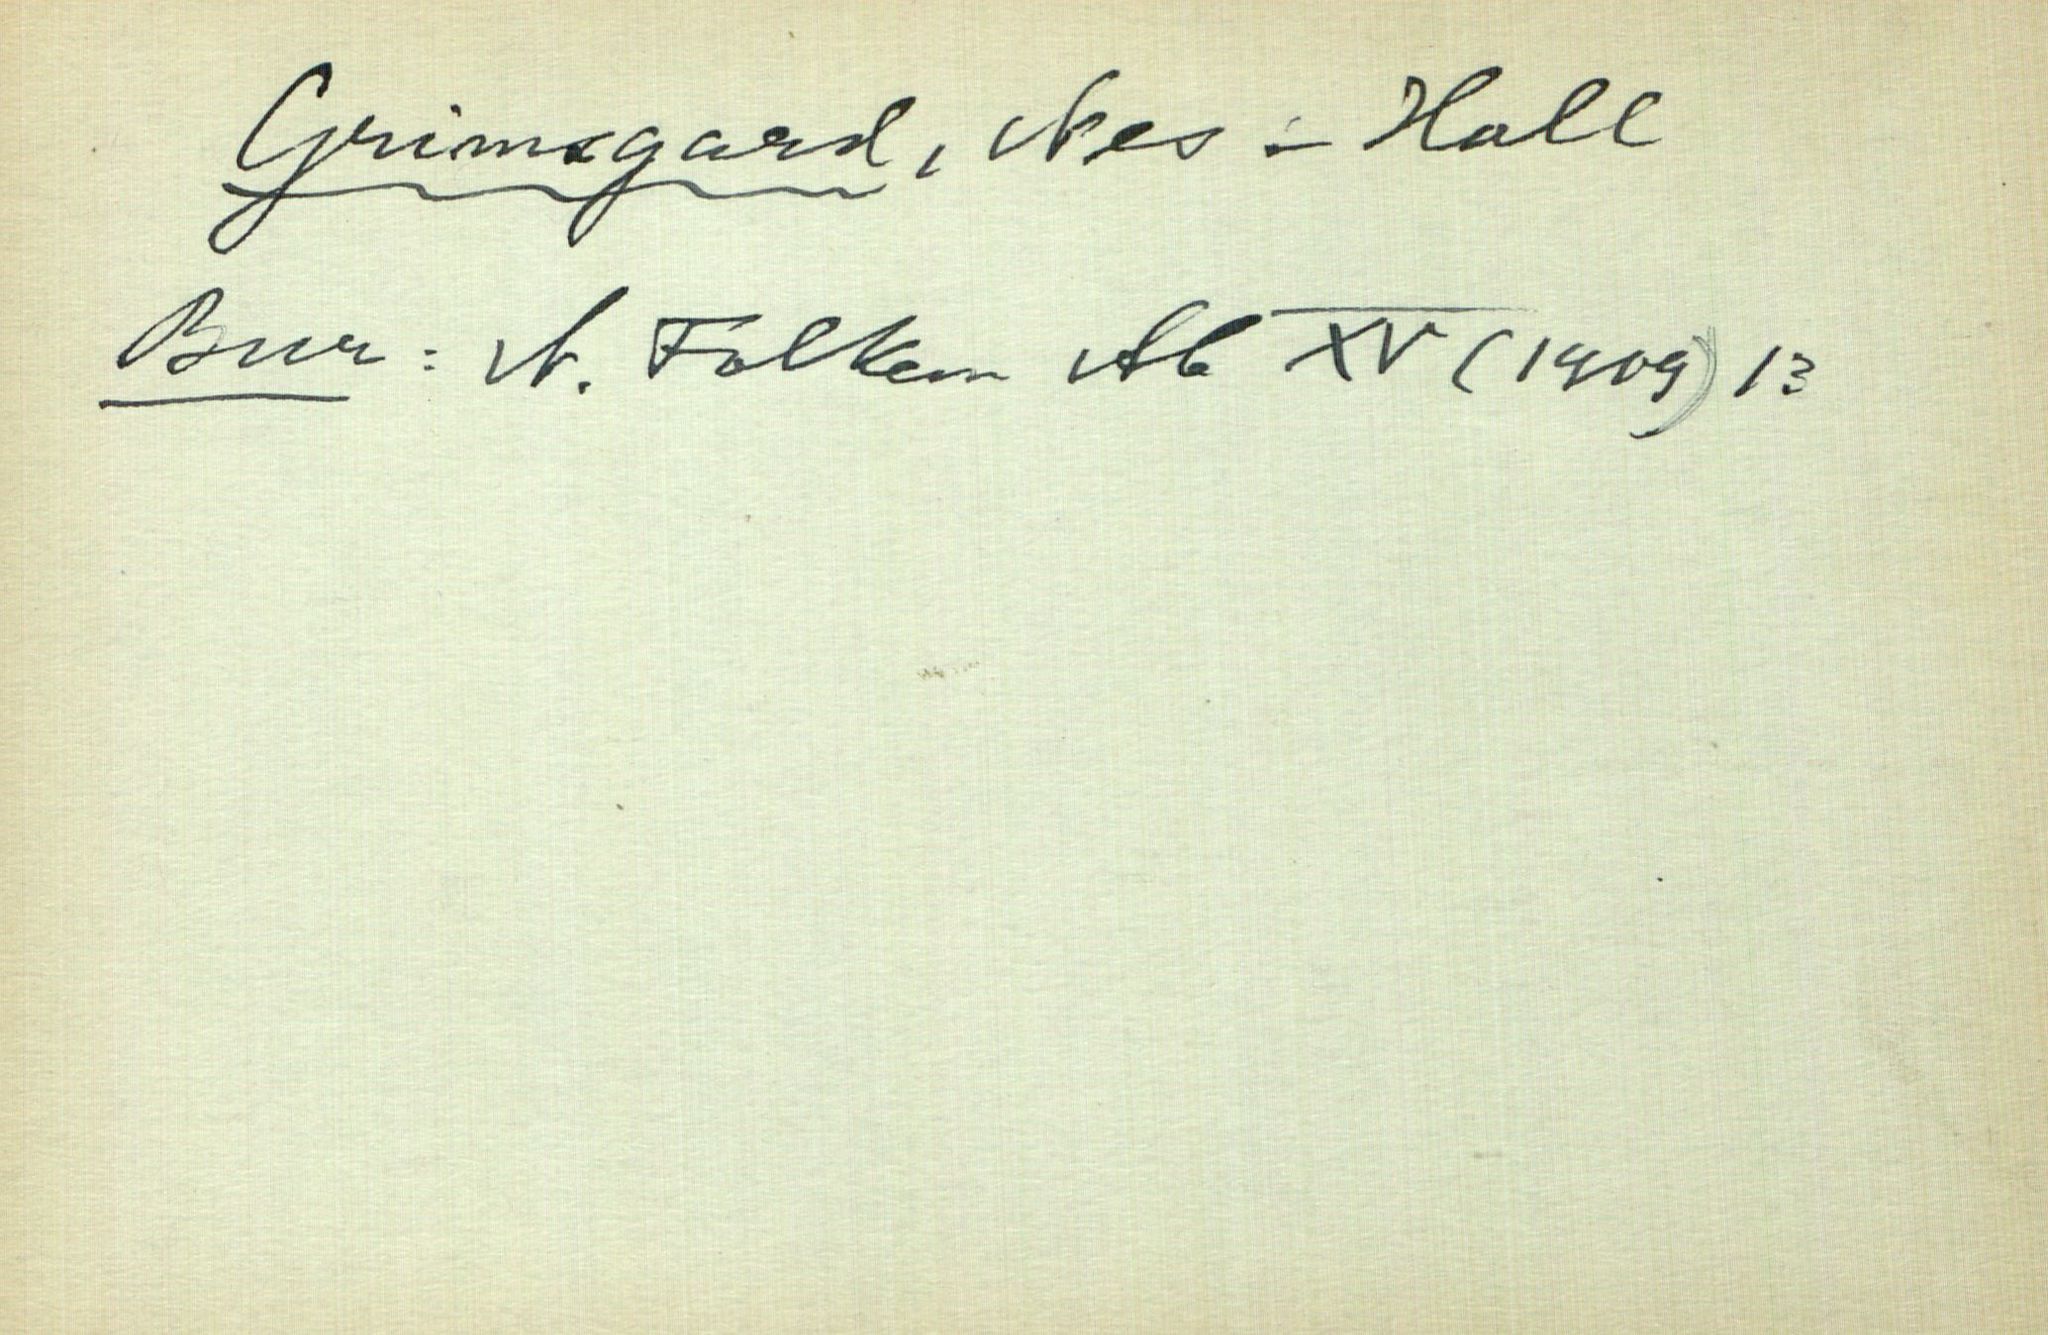 Grimsgard, Nes i Hall
Bur: N. Folkem Ab XV (1909) 13